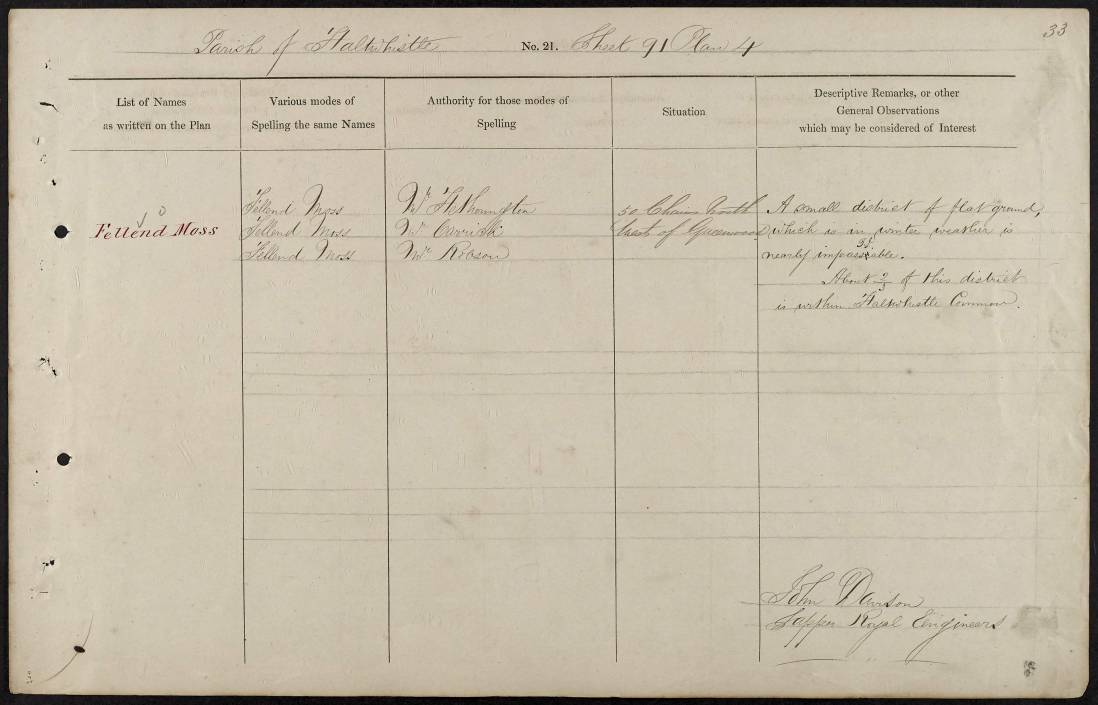 33
Parish of Haltwhistle No. 21. Sheet 91 Plan 4
List of Names
as written on the Plan
Various modes of
Spelling the same Names
Authority for those modes of
Spelling
Situation
Descriptive Remarks, or other
General Observations
which may be considered of Interest
Fellend Moss
Fellend Moss
Fellend Moss
Fellend Moss
Mr. Hetherington
Mr. Carrick
Mr. Robson
50 Chains North
West of Greenwood
A small district of flat ground,
which is in winter weather is
nearly impassable.
About 2/3 of this district
is within Haltwhistle Common.
John Davison
Sapper Royal Engineers